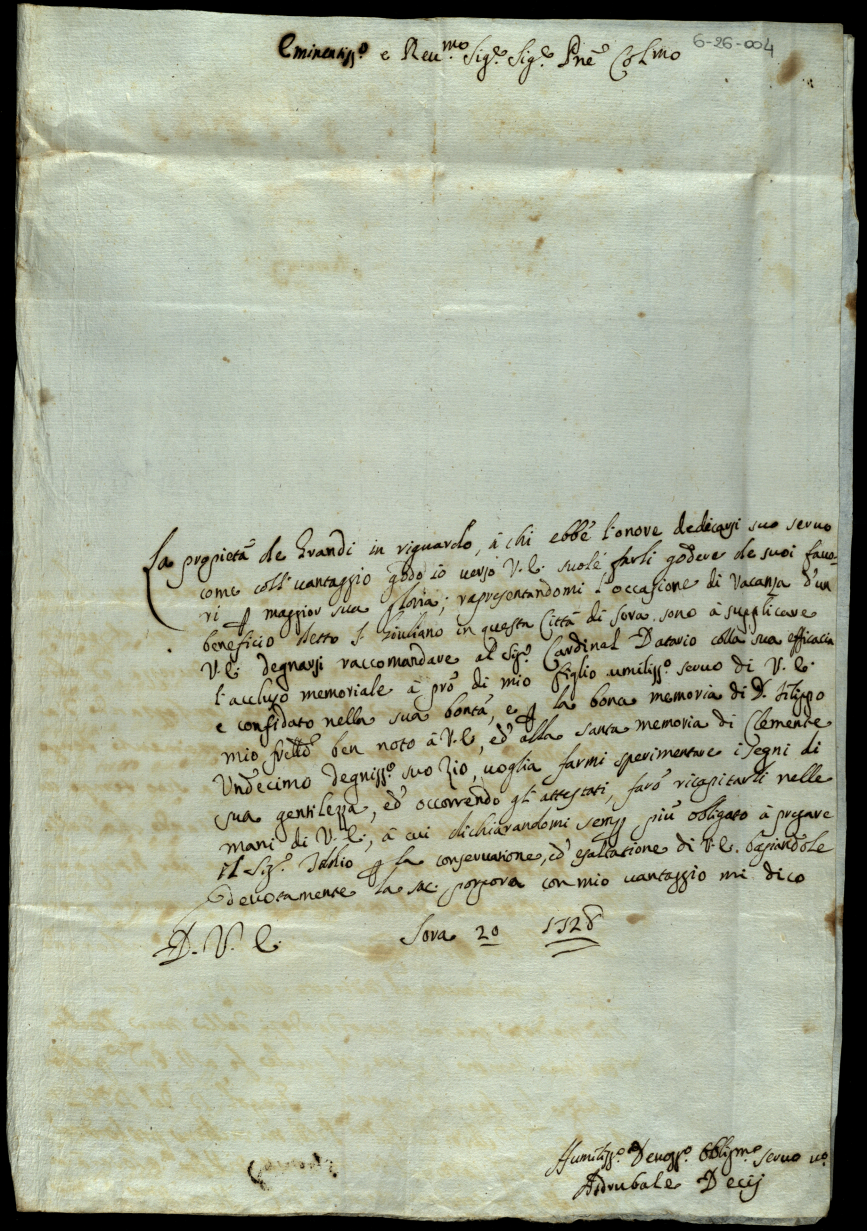 6-26-004
Eminentiss.º e Reu.mo Sig.e Sig.e Pnē Col.mo
La propietà de Grandi in riguardo, à chi ebbe l'onore dedicarsi suo seruo
come coll'uantaggio godo io uerso V. E. suole farli godere de suoi fauo-
ri p maggior sua gloria; rapresentandomi l'occasione di Vacanza d'un
beneficio detto S. Giuliano in questa Città di Sora. sono à supplicare
V. E. degnarsi raccomandare al Sig.e Cardinal Datario colla sua efficacia
l'accluso memoriale à prò di mio figlio umiliss.º seruo di V. E.
e confidato nella sua bontà, e p la bona memoria di D. Filippo
mio frello ben noto à V. E., ed' alla santa memoria di Clemente
Undecimo degniss.º suo Zio, uoglia farmi sperimentare i segni di
sua gentilezza, ed' occorrendo gl'attestati, farò ricapitarli nelle
mani di V. E., à cui dichiarandomi semp più obligato à pregare
il Sig.e Iddio p la conseruatione, ed' esaltatione di V. E. bagiandole
deuotamente la sac. porpora con mio uantaggio mi dico
D. V. E. Sora 20 1728
Humiliss.º Deuoss.º Obligmo seruo uº
Asdrubale Decij